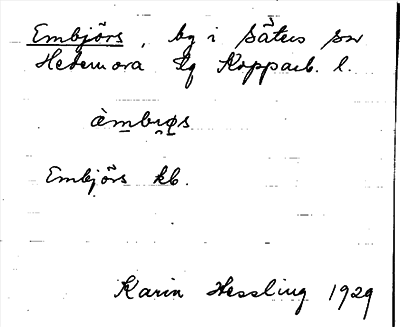 Embjörs, by i Säters sn
Hedemora tg Kopparb. l.
àmbrǫs
Embjörs kb.
Karin Hessling 1929